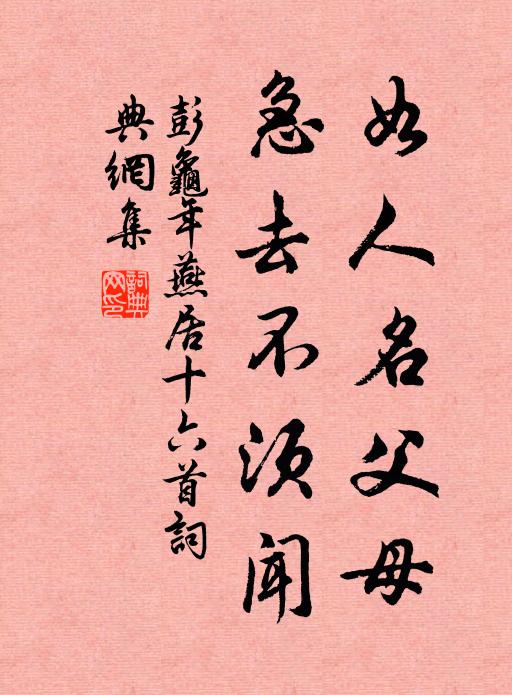 如人名父母
急去不须闻
彭龜年燕居十六首詞
典網集
詞典
网印